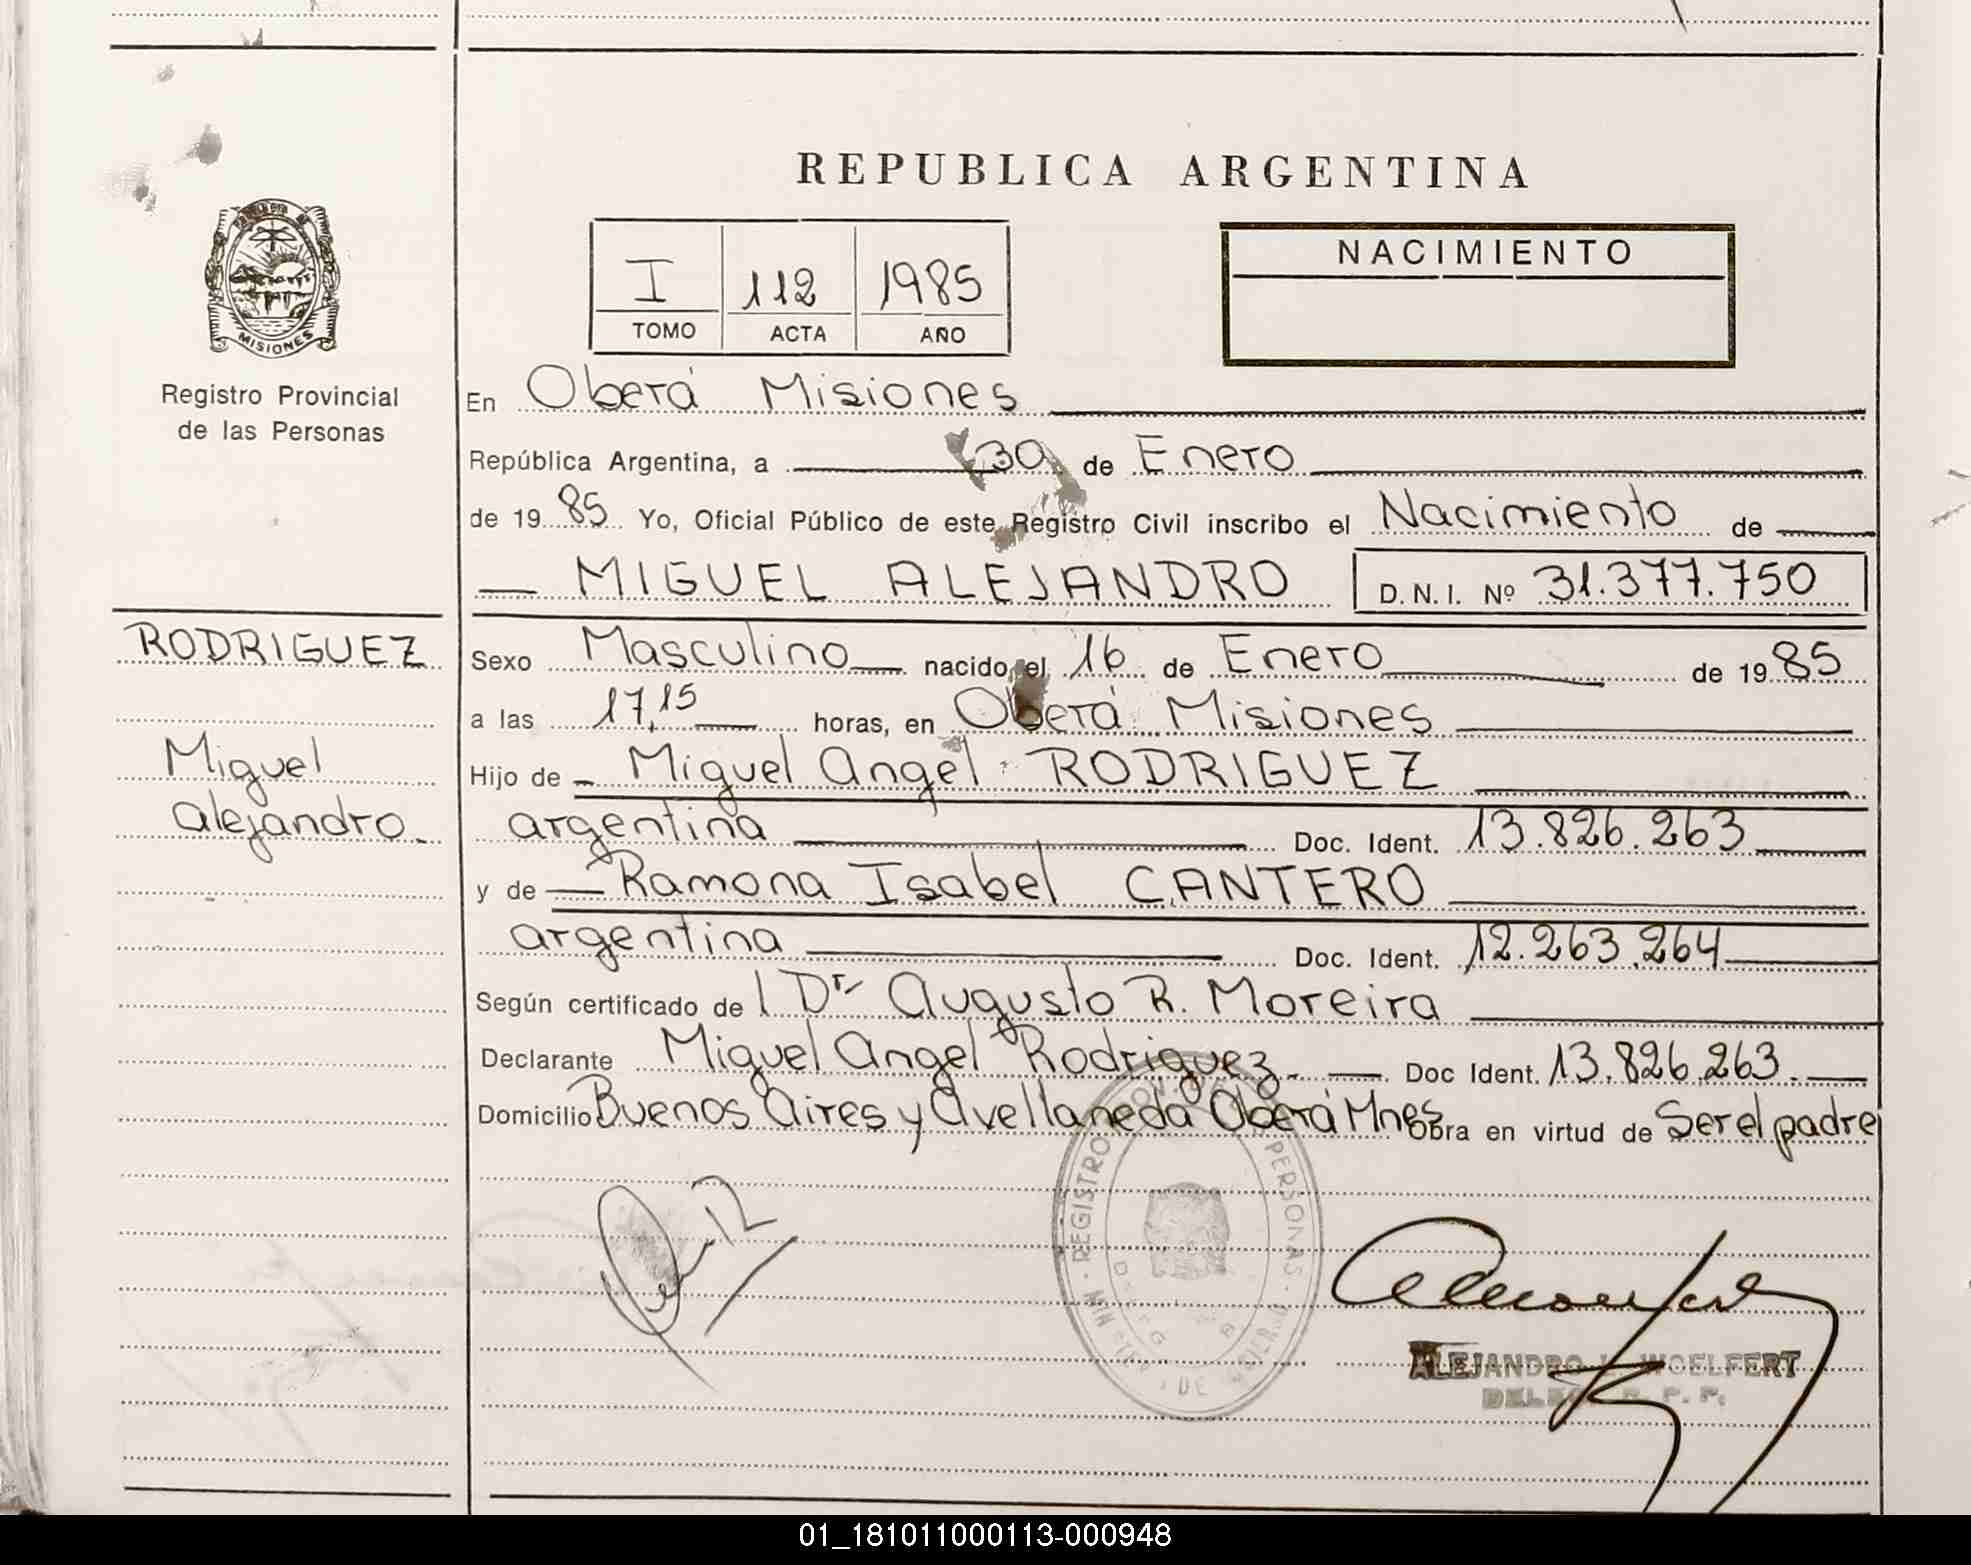 REPUBLICA ARGENTINA
NACIMIENTO
I 112 1985
TOMO ACTA AÑO
MISIONES
Registro Provincial
de las Personas
En Oberá Misiones
República Argentina, a 30 de Enero
de 1985 Yo, Oficial Público de este Registro Civil inscribo el Nacimiento de
MIGUEL ALEJANDRO D.N.I. Nº 31.377.750
RODRIGUEZ
Miguel
Alejandro.
Sexo Masculino nacido el 16 de Enero de 1985
a las 17,15 horas, en Oberá Misiones
Hijo de Miguel Angel RODRIGUEZ
argentina Doc. Ident. 13.826.263
y de Ramona Isabel CANTERO
argentina Doc. Ident. 12.263.264
Según certificado de l Dr Augusto R. Moreira
Declarante Miguel Angel Rodriguez. Doc Ident. 13.826.263.
Domicilio Buenos Aires y Avellaneda Oberá Mnes Obra en virtud de Ser el padre
REGISTRO PERSONAS
ALEJANDRO WOELFERT
01_181011000113-000948